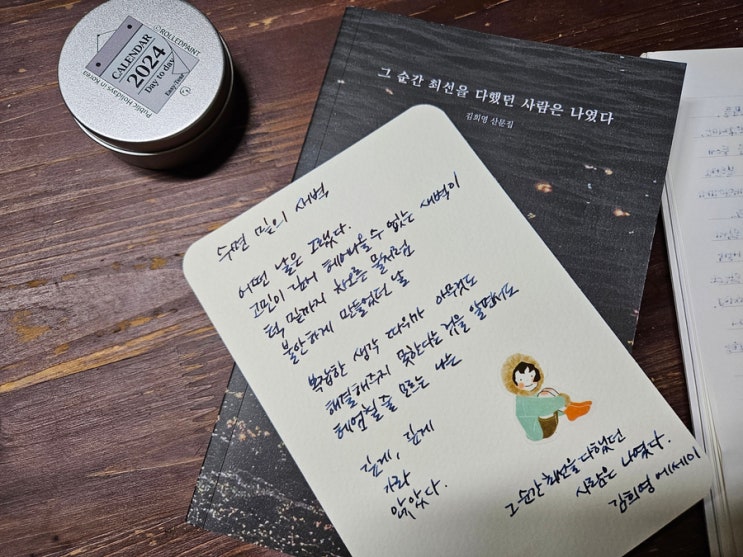 ROLLEDPAINT
CALENDAR
2024
Day to day
Easy Deal
Public Holidays in Korea
그 순간 최선을 다했던 사람은 나였다
김희영 산문집
수면 밑의 새벽
어떤 날은 그랬다.
고민이 깊어 헤어나올 수 없는 새벽이
턱 밑까지 차오른 물처럼
불안하게 만들었던 날
복잡한 생각 따위가 아무것도
해결해주지 못한다는 것을 알면서도
헤엄칠 줄 모르는 나는
깊게, 깊게
가라
앉았다.
그 순간 최선을 다했던
사람은 나였다.
김희영 에세이